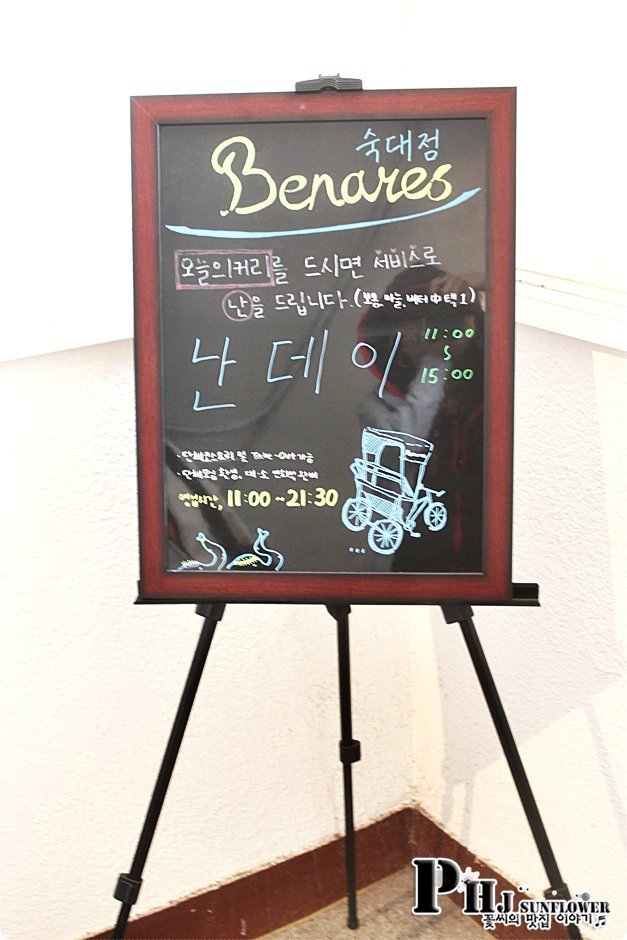 숙대점
Benares
오늘의커리를 드시면 서비스로
난을 드립니다.(보통,마늘,버터中택1)
난 데 이
11:00
~
15:00
Take-Out 가능
영업시간, 11:00 ~21:30
PHJ SUNFLOWER
꽃씨의 맛집 이야기